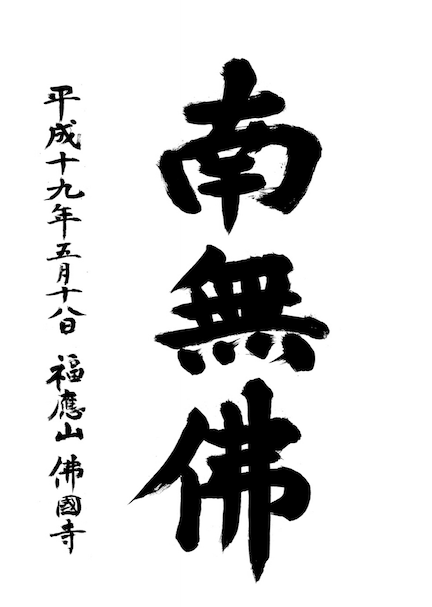 南無佛
平成十九年五月十八日 福應山 佛國寺